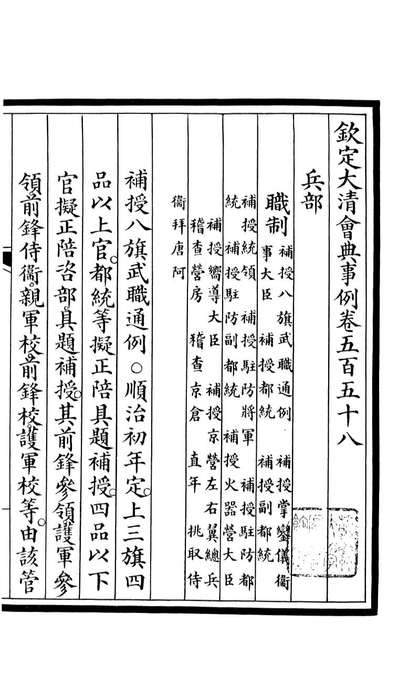 欽定大清會典事例卷五百五十八
兵部
職制
補授八旗武職通例 補授掌鑾儀衞
事大臣 補授都統 補授副都統
補授統領 補授駐防將軍 補授駐防都
統 補授駐防副都統 補授火器營大臣
補授嚮導大臣 補授京營左右翼總兵
稽查營房 稽查京倉 直年 挑取侍
衞拜唐阿
補授八旗武職通例○順治初年定。上三旗四
品以上官。都統等擬正陪具題補授。四品以下
官擬正陪咨部具題補授。其前鋒參領護軍參
領前鋒侍衞。親軍校前鋒校護軍校等。由該管